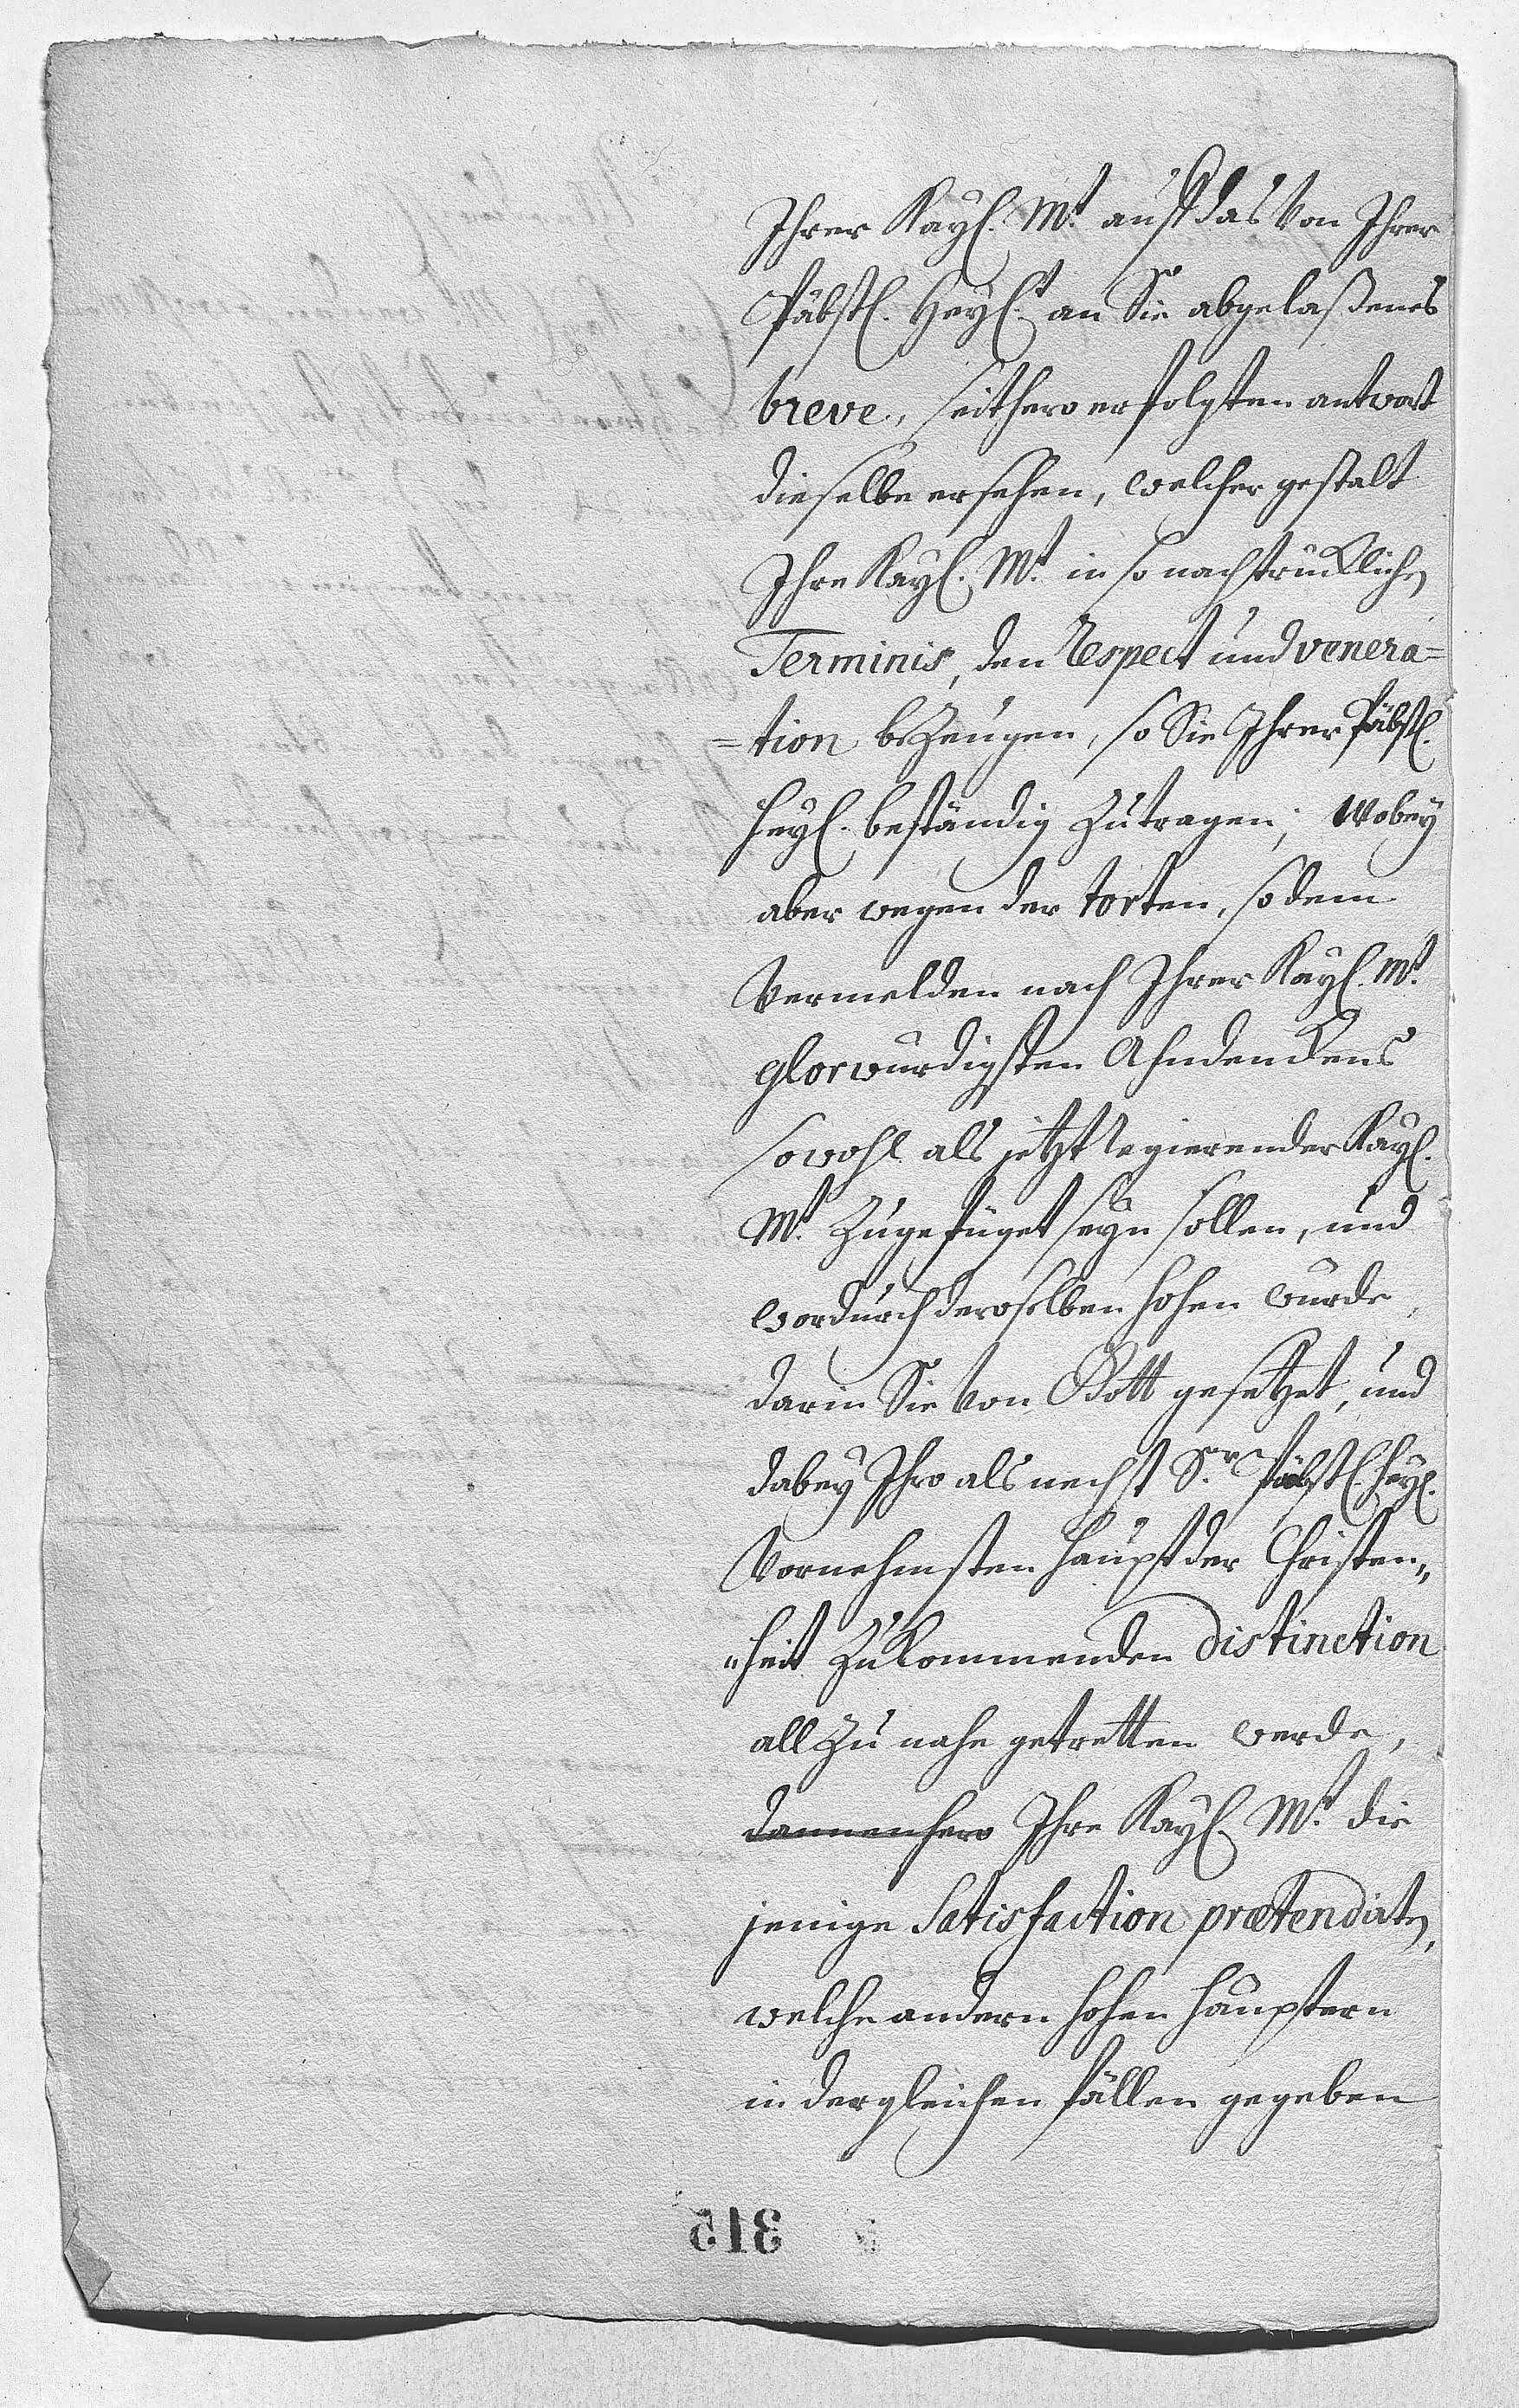 Ihrer Kayl. Mt. auf das von Ihrer
Päbstl. Heyl.t an Sie abgelaßenes
breve, seithero erfolgten antwort
dieselbe ersehen, welcher gestalt
Ihre Kayl. Mt. in so nachtrücklichen
Terminis, den Respect und venera=
=tion bezeugen, so Sie Ihrer Päbstl.
Heyl. beständig zutragen; Wobey
aber wegen der torten, so dem
Vermelden nach Ihrer Kayl. Mt.
glorwürdigsten Ahndenckens
sowohl als jetzt regierender Kayl.
Mt. zugefüget seyn sollen, und
wordurch deroselben hohen würde,
darin Sie von Gott gesetzet, und
dabey Ihro als nechst Sr. Päbstl. Heyl.
Vornehmsten Haupt der Christen„
„heit zukommenden distinction
all zu nahe getretten werde,
dannenhero Ihre Kayl. Mt. die
jenige Satisfaction prætendirten,
welche andern hohen Häuptern
in dergleichen fällen gegeben
315